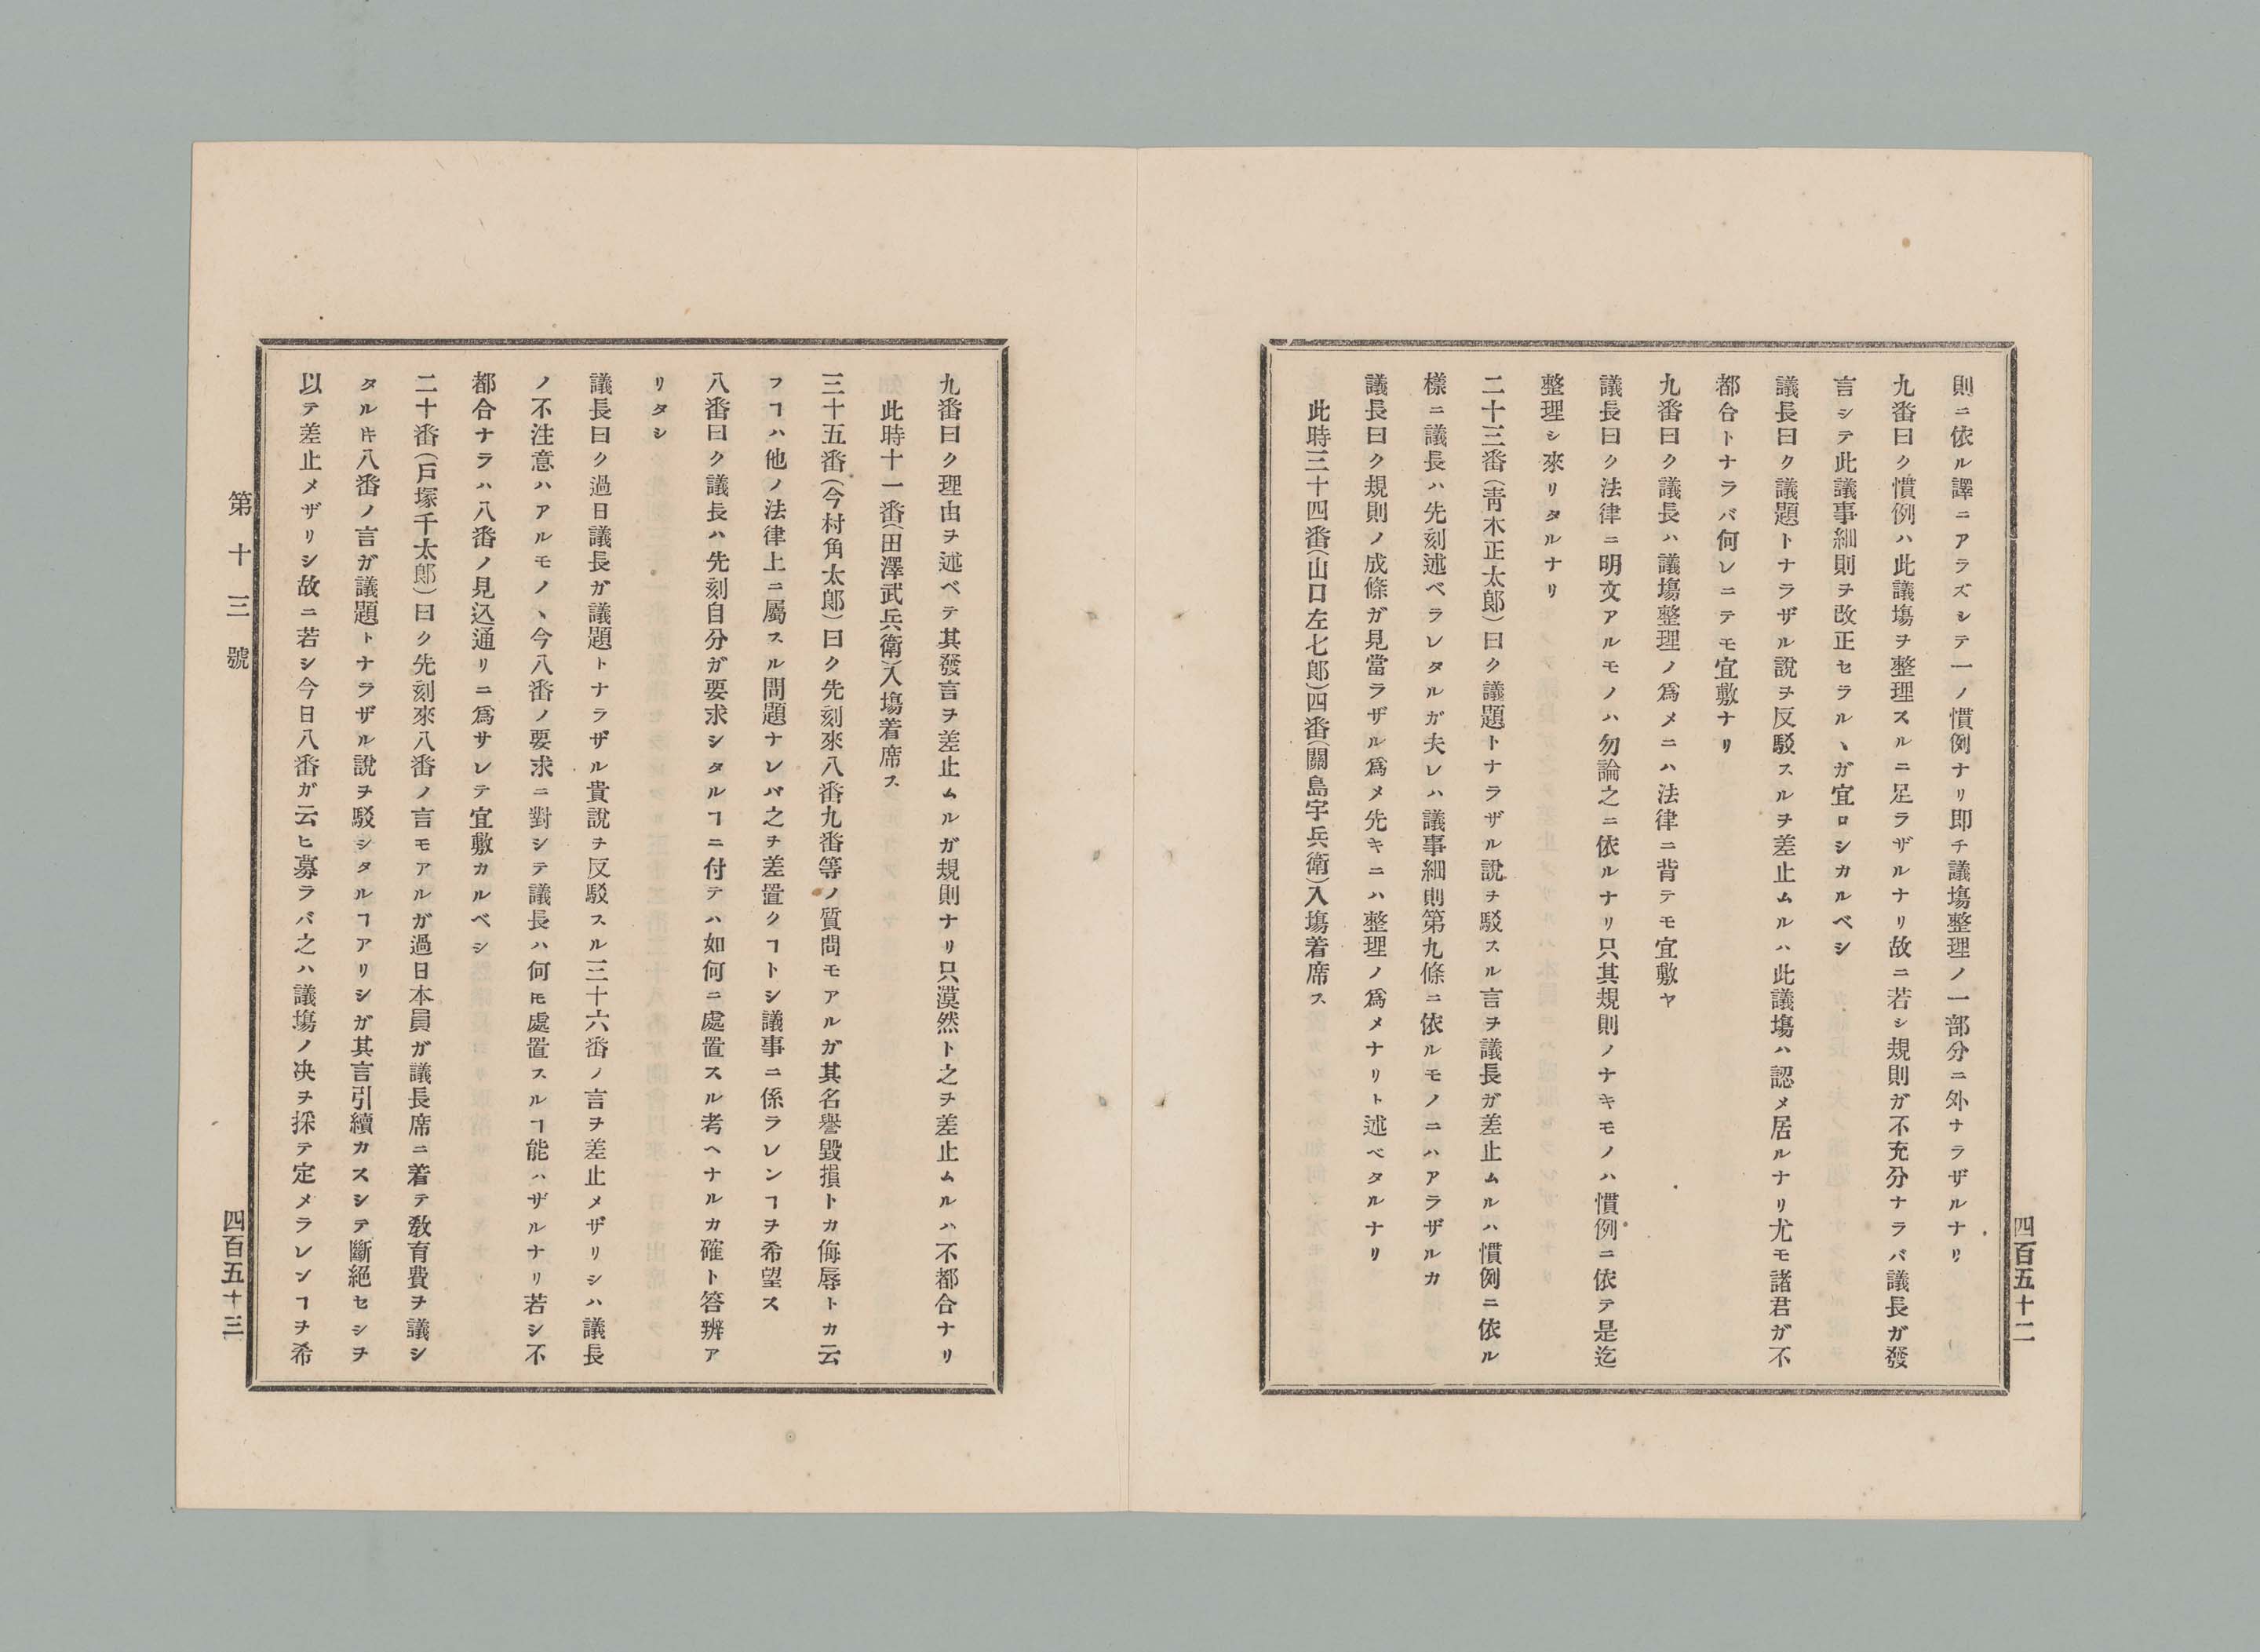 四百五十二
則ニ依ル譯ニアラズシテ一ノ慣例ナリ即チ議塲整理ノ一部分ニ外ナラザルナリ
九番曰ク慣例ハ此議塲ヲ整理スルニ足ラザルナリ故ニ若シ規則ガ不充分ナラバ議長ガ發
言シテ此議事細則ヲ改正セラルヽガ宜ロシカルベシ
議長曰ク議題トナラザル說ヲ反駁スルヲ差止ムルハ此議塲ハ認メ居ルナリ尤モ諸君ガ不
都合トナラバ何レニテモ宜敷ナリ
九番曰ク議長ハ議塲整理ノ爲メニハ法律ニ背テモ宜敷ヤ
議長曰ク法律ニ明文アルモノハ勿論之ニ依ルナリ只其規則ノナキモノハ慣例ニ依テ是迄
整理シ來リタルナリ
二十三番(靑木正太郎)曰ク議題トナラザル說ヲ駁スル言ヲ議長ガ差止ムルハ慣例ニ依ル
樣ニ議長ハ先刻述ベラレタルガ夫レハ議事細則第九條ニ依ルモノニハアラザルカ
議長曰ク規則ノ成條ガ見當ラザル爲メ先キニハ整理ノ爲メナリト述ベタルナリ
此時三十四番(山口左七郎)四番(關島宇兵衛)入塲着席ス
九番曰ク理由ヲ述ベテ其發言ヲ差止ムルガ規則ナリ只漠然ト之ヲ差止ムルハ不都合ナリ
此時十一番(田澤武兵衛)入塲着席ス
三十五番(今村角太郎)曰ク先刻來八番九番等ノ質問モアルガ其名譽毀損トカ侮辱トカ云
フヿハ他ノ法律上ニ屬スル問題ナレバ之ヲ差置クヿトシ議事ニ係ラレンヿヲ希望ス
八番曰ク議長ハ先刻自分ガ要求シタルヿニ付テハ如何ニ處置スル考ヘナルカ確ト答辨ア
リタシ
議長曰ク過日議長ガ議題トナラザル貴說ヲ反駁スル三十六番ノ言ヲ差止メザリシハ議長
ノ不注意ハアルモノヽ今八番ノ要求ニ對シテ議長ハ何𪜈處置スルヿ能ハザルナリ若シ不
都合ナラハ八番ノ見込通リニ爲サレテ宜敷カルベシ
二十番(戸塚千太郎)曰ク先刻來八番ノ言モアルガ過日本員ガ議長席ニ着テ敎育費ヲ議シ
タル𪜈八番ノ言ガ議題トナラザル說ヲ駁シタルヿアリシガ其言引續カスシテ斷絕セシヲ
以テ差止メザリシ故ニ若シ今日八番ガ云ヒ募ラバ之ハ議塲ノ决ヲ採テ定メラレンヿヲ希
第十三號
四百五十三